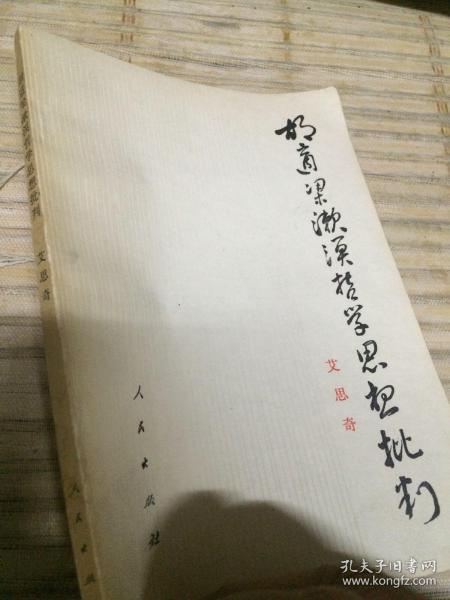 胡适梁漱溟哲学思想批判
艾思奇
人民出版社
胡适梁漱溟哲学思想批判
艾思奇
人民出版
孔夫子旧书网
www.kongfz.com